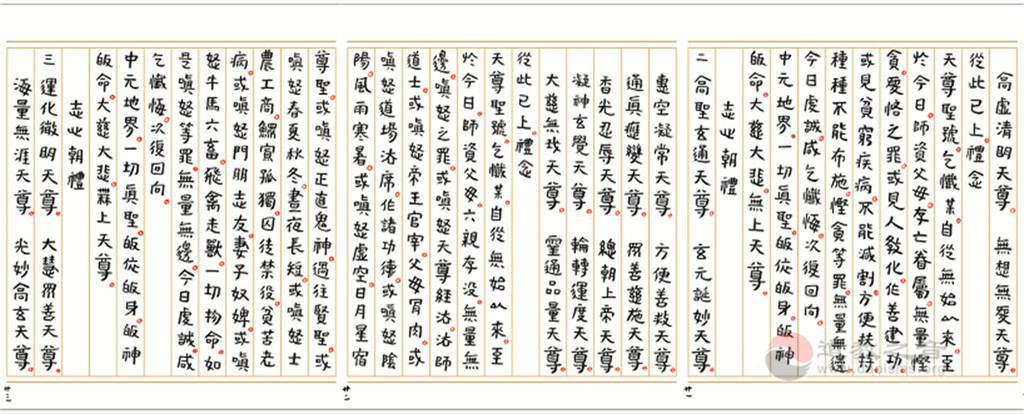 高虛清明天尊 無想無愛天尊
從此已上禮念
天尊聖號乞懺某自從無始以來至
於今日師資父母存亡眷屬無量慳
貪愛悋之罪或見人教化作善建功
或見貧窮疾病不能減割方便扶持
種種不能布施慳貪等罪無量無邊
今日虔誠咸乞懺悔次復回向
中元地界一切眞聖皈依皈身皈神
皈命大慈大悲無上天尊
志心朝禮
二 高聖玄通天尊 玄元誕妙天尊
廿一
惠空凝常天尊 方便善救天尊
通眞應變天尊 界善慈施天尊
香光忍辱天尊 總朝上帝天尊
凝神玄覺天尊 輪轉運度天尊
大慈無攷天尊 靈通品量天尊
從此已上禮念
天尊聖號乞懺某自從無始以來至
於今日師資父母六親存沒無量無
邊嗔怒之罪或嗔怒天尊經法法師
道士或嗔怒帝王官宰父母骨肉或
嗔怒道場法席作諸功德或嗔怒陰
陽風雨寒暑或嗔怒虛空日月星宿
廿二
尊聖或嗔怒正直鬼神過往賢聖或
嗔怒春夏秋冬晝夜長短或嗔怒士
農工商鰥寡孤獨囚徒禁役貧苦老
病或嗔怒門朋志友妻子奴婢或嗔
怒牛馬六畜飛禽走獸一切物命如
是嗔怒等罪無量無邊今日虔誠咸
乞懺悔次復回向
中元地界一切眞聖皈依皈身皈神
皈命大慈大悲無上天尊
志心朝禮
三 運化微明天尊 大慧界善天尊
海量無涯天尊 光妙高玄天尊
廿三